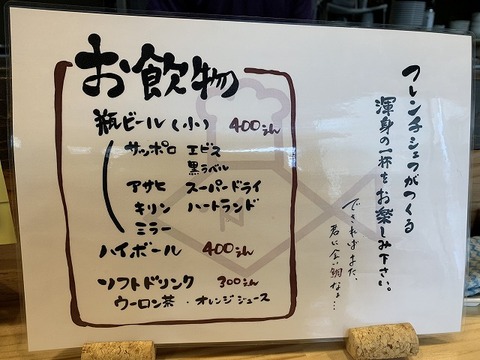 お飲物
瓶ビール(小) 400えん
サッポロ エビス
黒ラベル
アサヒ スーパードライ
キリン ハートランド
ミラー
ハイボール 400えん
ソフトドリンク 300えん
ウーロン茶・オレンジジュース
フレンチシェフがつくる
渾身の一杯を
お楽しみ下さい。
できればまた、
君に会い鯛なぁ…